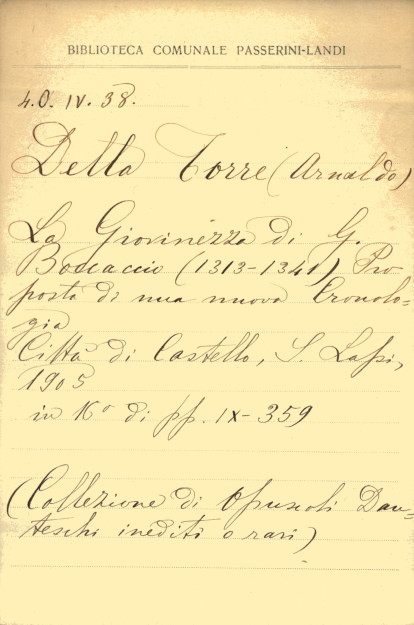 BIBLIOTECA COMUNALE PASSERINI-LANDI
4.O. IV. 38.
Della Torre (Arnaldo)
La Giovinezza di G.
Boccaccio (1313-1341) Pro-
posta di una nuova Cronolo-
gia
Città di Castello, S. Lapi,
1905
in 16º di pp. IX-359
(Collezione di Opuscoli Dan-
teschi inediti o rari)